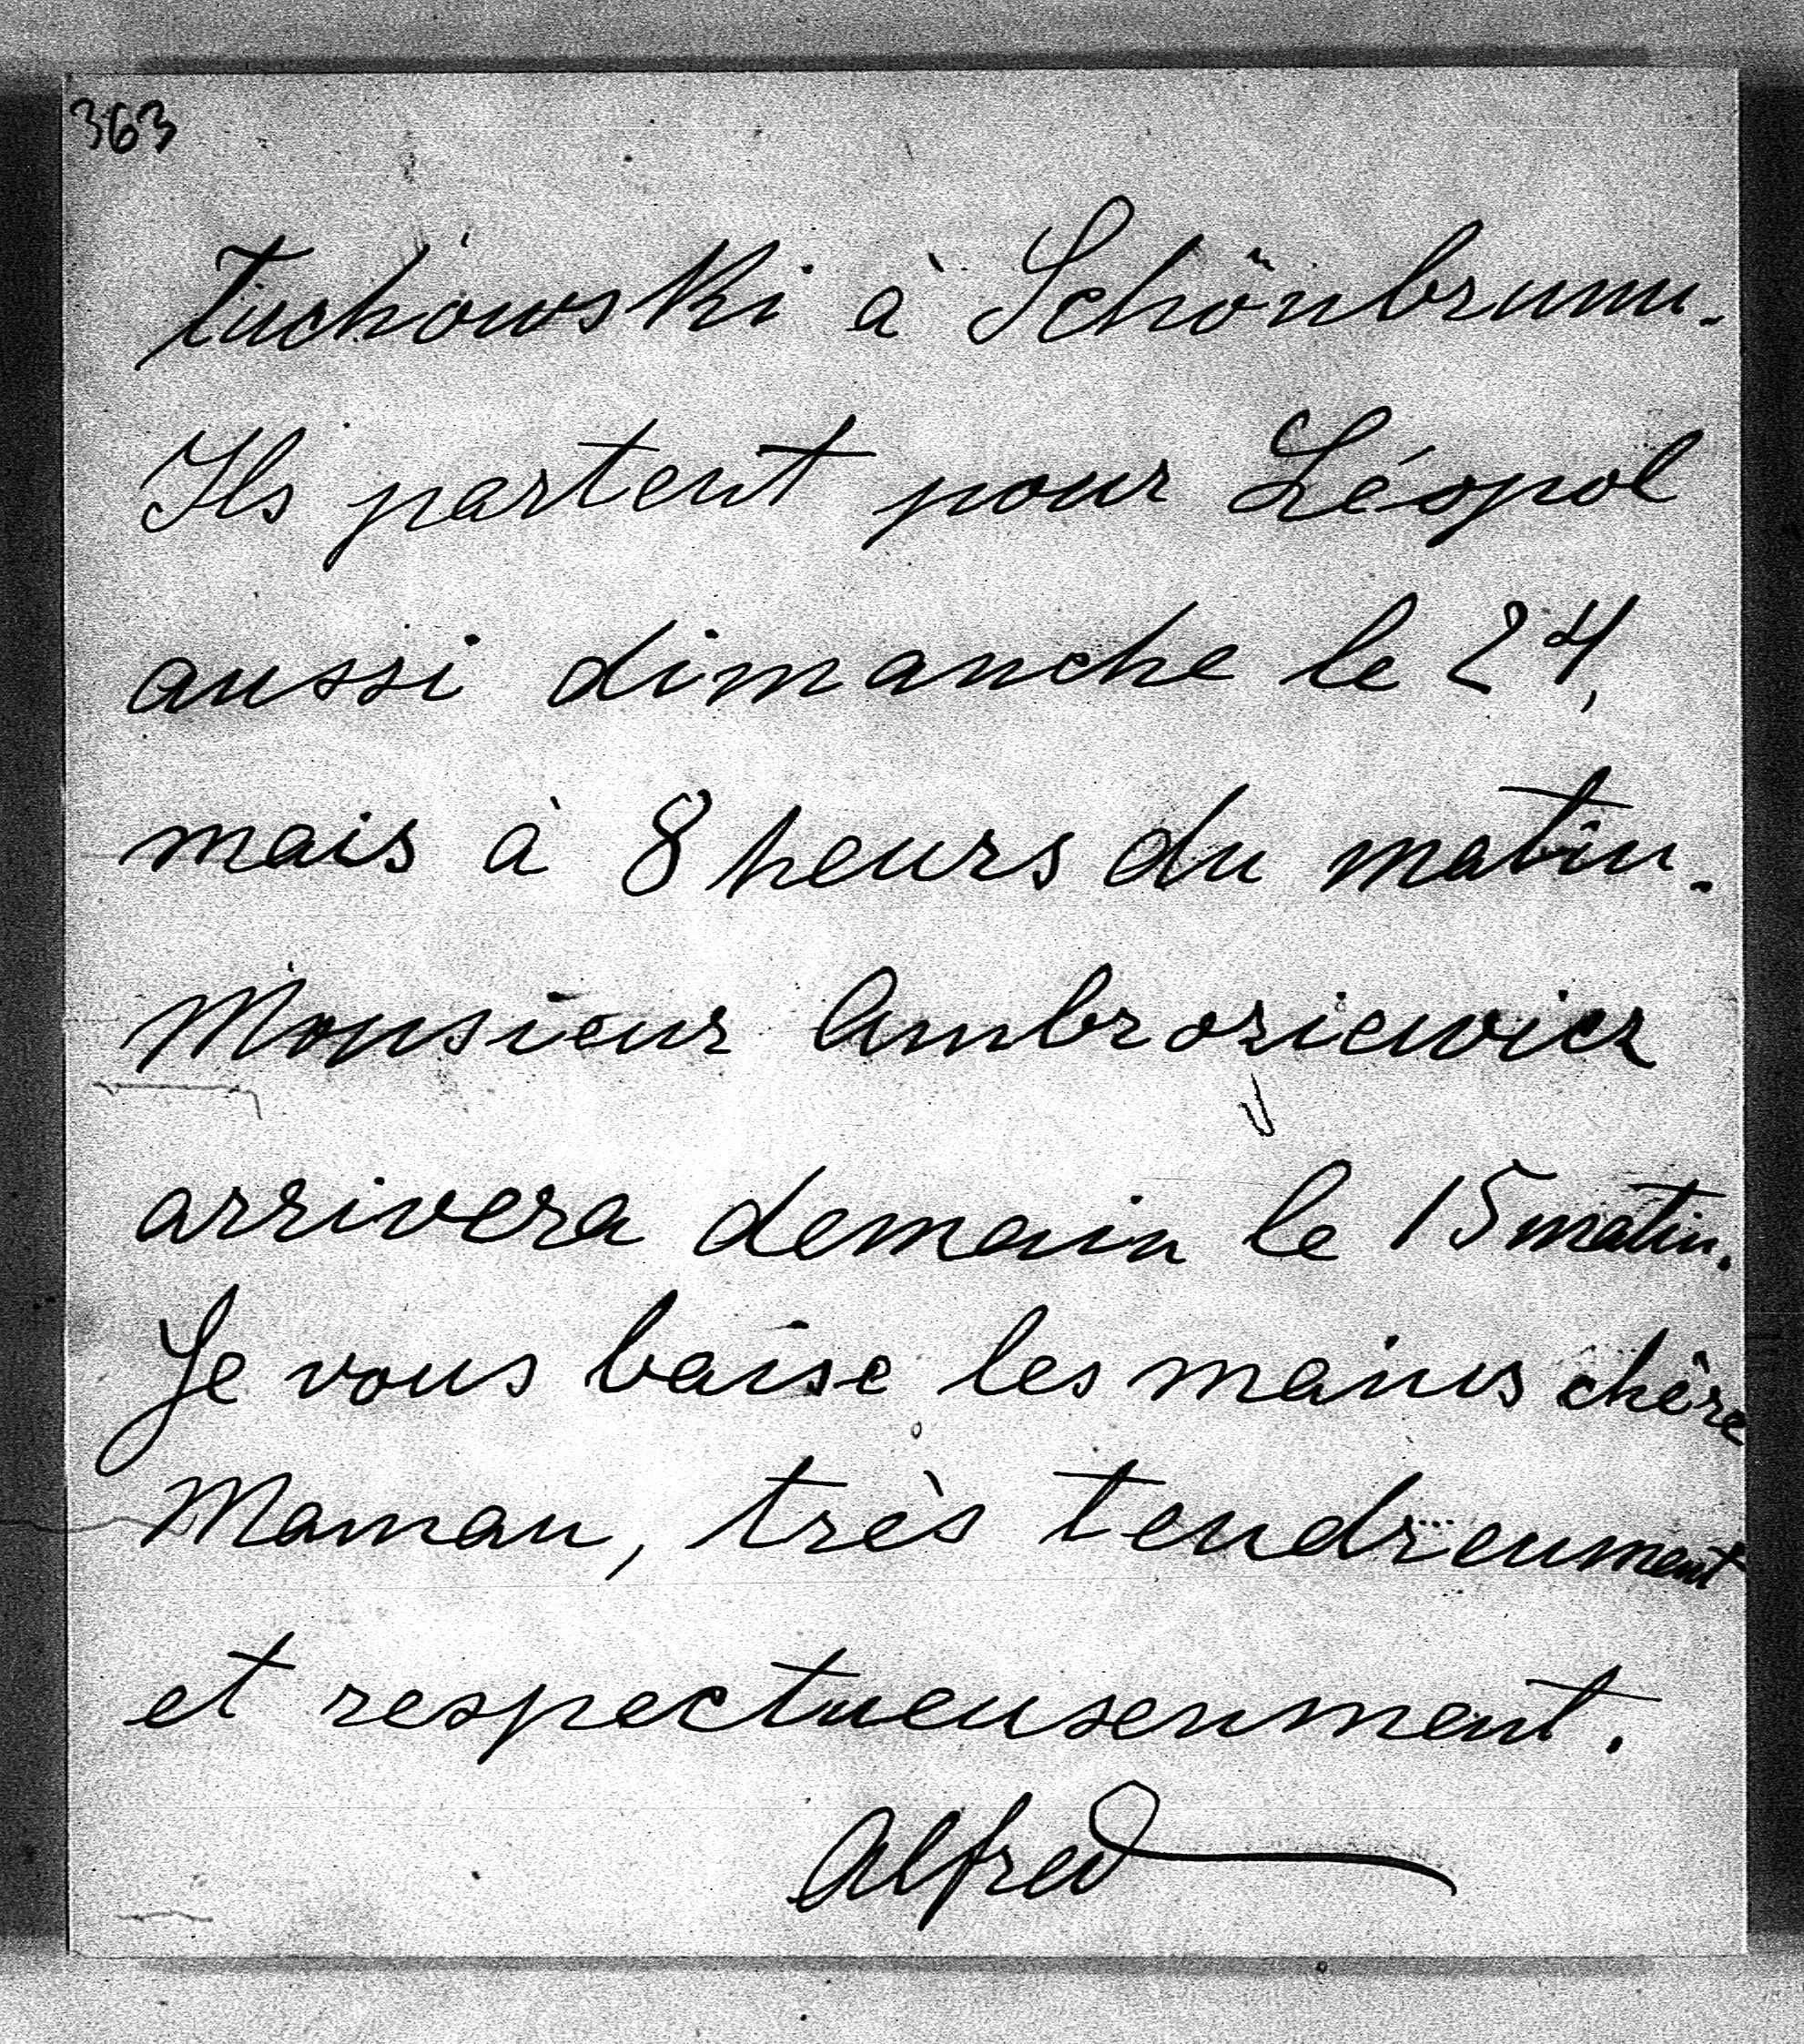 363
Tuchowski à Schönbrunn.
Ils partent pour Léopol
aussi dimanche le 24,
mais à 8 heurs du matin.
Monsieur Ambroziewicz
arrivera demain le 15 matin.
Je vous baise les mains chère
Maman, très tendreument
et respectueusenment.
Alfred